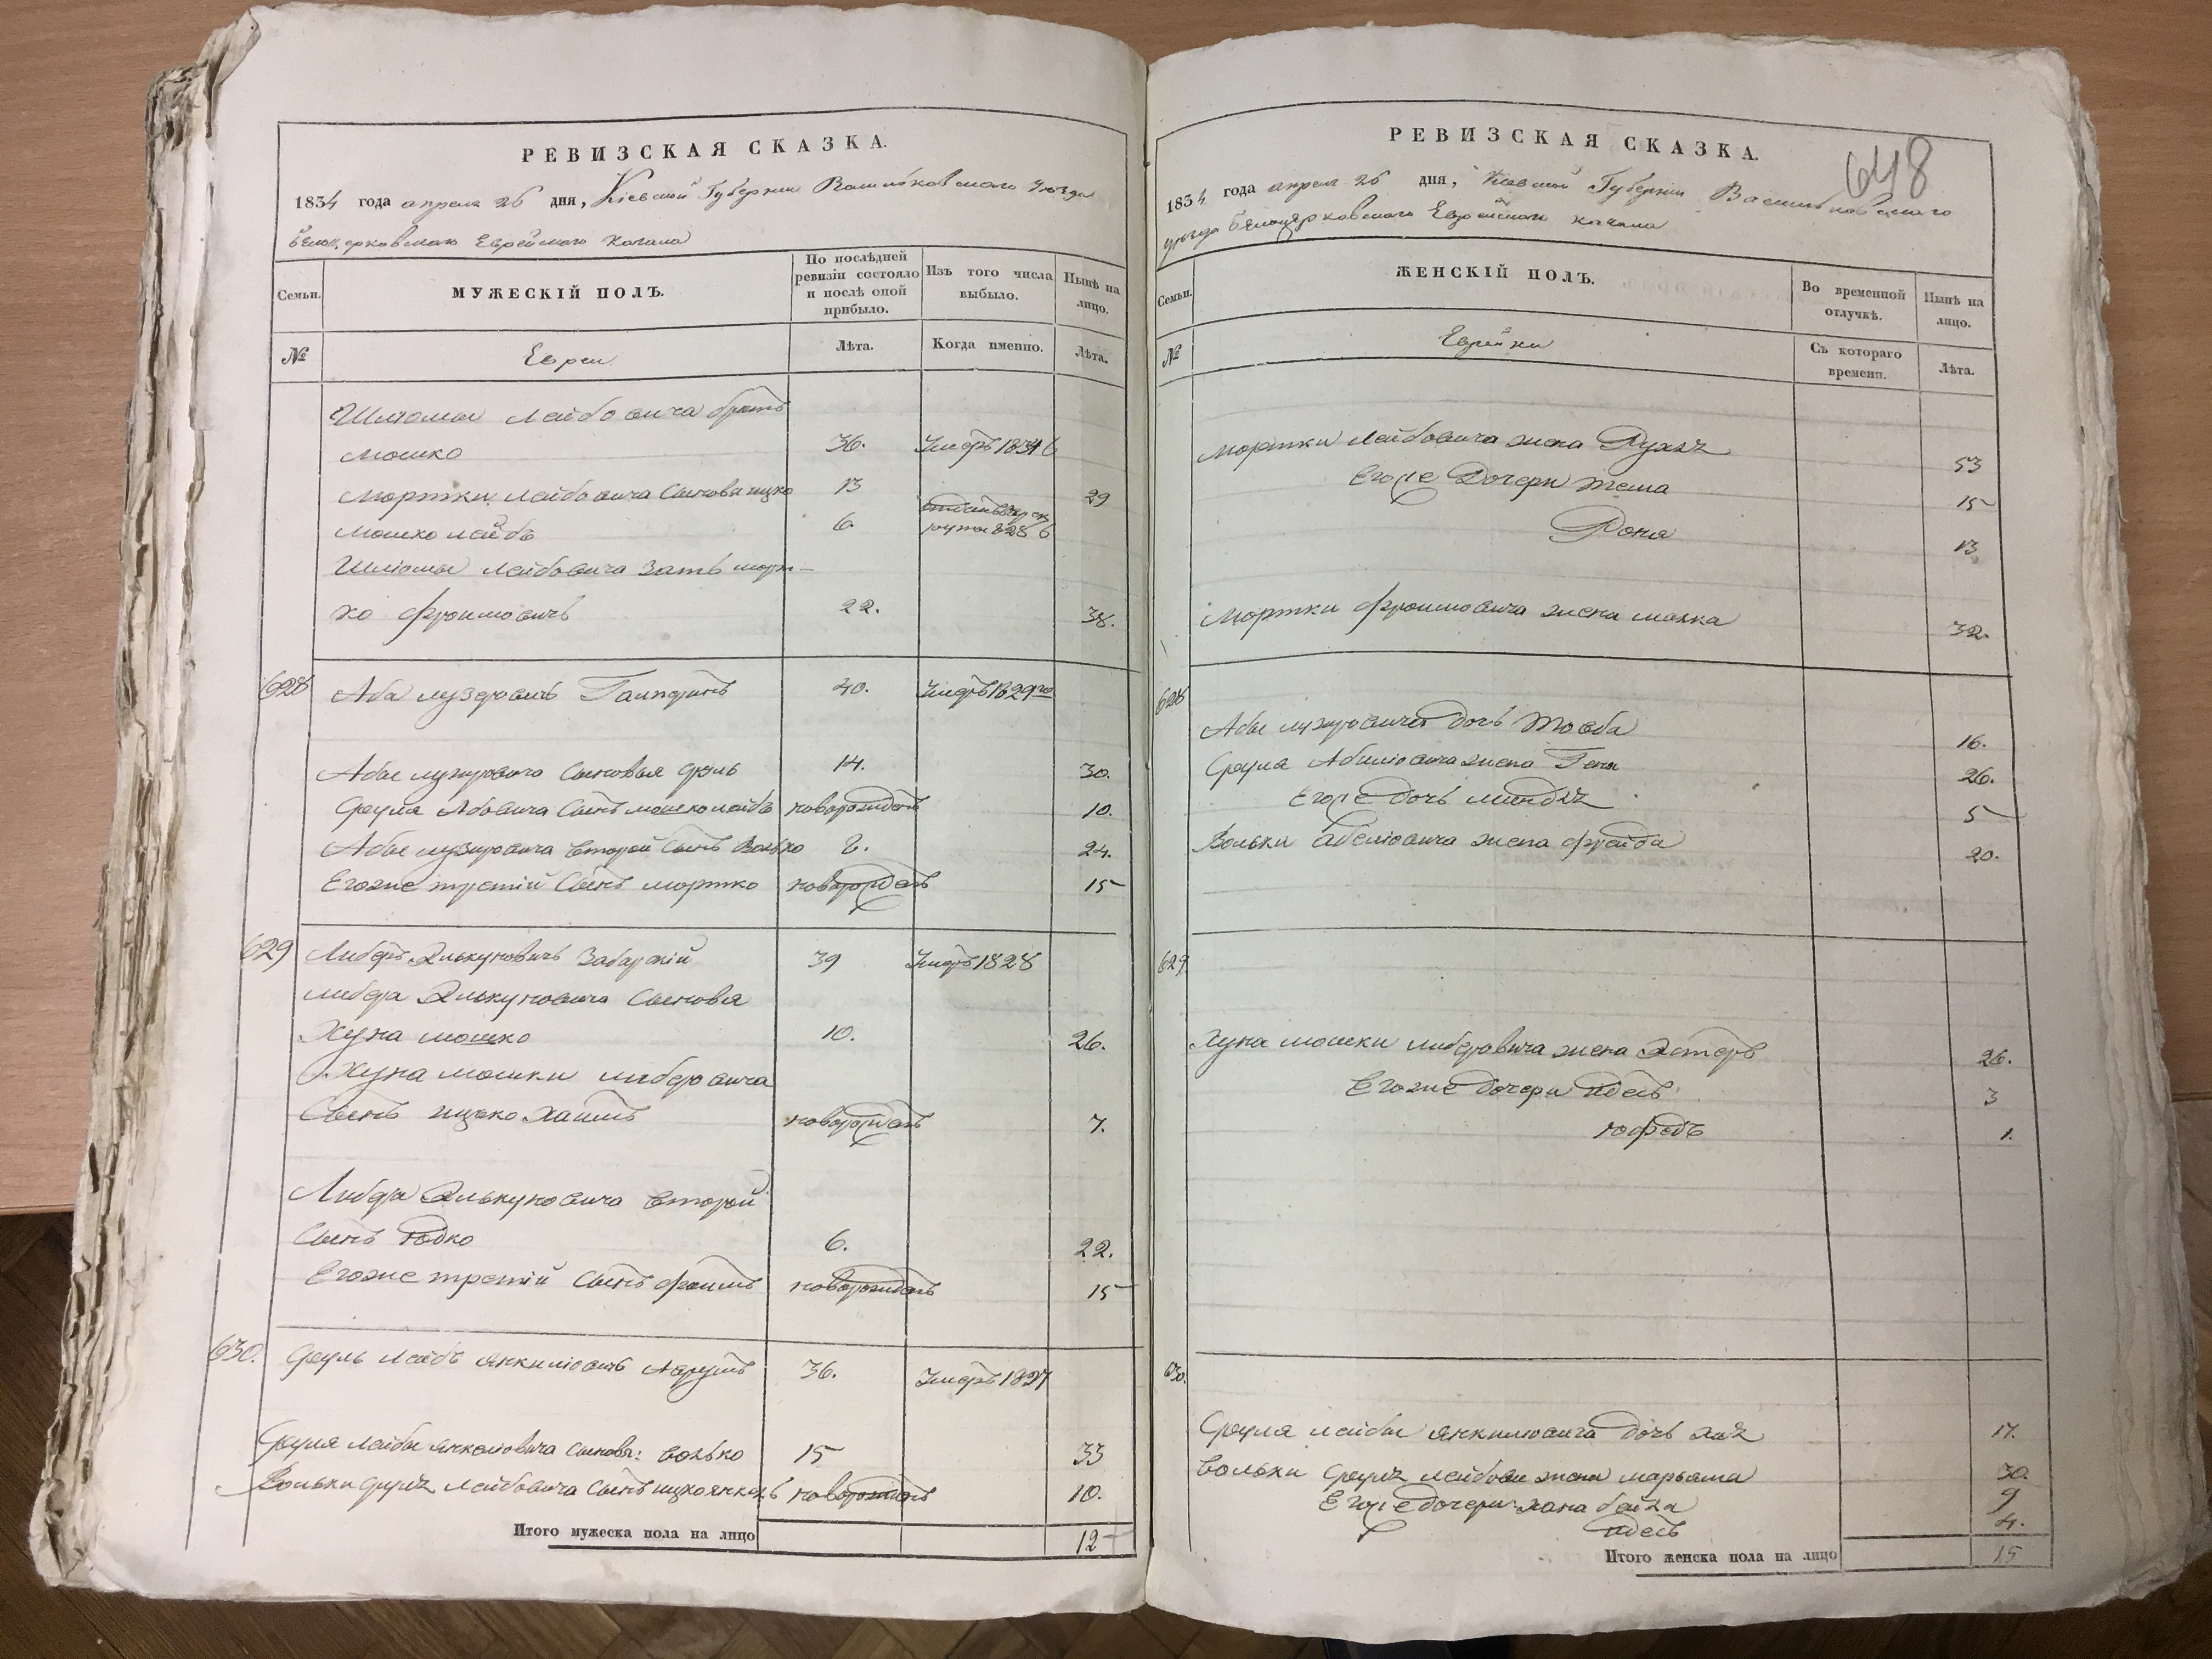 РЕВИЗСКАЯ СКАЗКА.
1834 года апреля 26 дня, Кіевской Губерніи Васильковскаго Уезда
Белоцерковскаго Еврейскаго Кагала
Семьи.
МУЖЕСКІЙ ПОЛЪ.
По послѣдней ревизіи состояло и послѣ оной прибыло.
Изъ того числа выбыло.
Нынѣ на лицо.
№
Евреи
Лѣта.
Когда именно.
Лѣта.
Шлiомы Лейбовича братъ
Мошко 36. Умеръ 1831 6
Мортки Лейбовича Сыновья ицко 13 29
Мошко лейбъ 6. 1828 6
Шлiомы Лейбовича Зять морт-
ко Фроимовичъ 22. 38.
628 Аба лузеровичъ 40. Умеръ 1829го
Абы лузеровича Сыновья Сруль 14. 30.
Сруля Абовича Сынъ мошко лейбъ новорожденъ 10.
Абы лузеровича второй Сынъ Волько 8. 24.
Егоже третій Сынъ мортко новорожденъ 15
629 Либеръ Элькуновичъ Забарскій 39 Умеръ 1828
либера Элькуновича Сыновья
Хуна мошко 10. 26.
Хуна мошки либеровича
Сынъ ицько Хаимъ новорожденъ 7.
Либера Элькуновича второй
Сынъ юдко 6. 22.
Егоже третій Сынъ фроимъ новорожденъ 15
630. Сруль Лейбъ Янкилiовичъ 36. Умеръ 1827
Сруля лейбы янкелiовича сыновья: волько 15 33
Вольки Сруля Лейбовича Сынъ ицко янкель новорожденъ 10.
Итого мужеска пола на лицо 12
РЕВИЗСКАЯ СКАЗКА.
648
1834 года апреля 26 дня, Кіевской Губерніи Васильковскаго
уезда Белоцерковскаго Еврейскаго кагала
Семьи.
ЖЕНСКІЙ ПОЛЪ.
Во временной отлучкѣ.
Нынѣ на лицо.
№
Еврейки
Съ котораго времени.
Лѣта.
Мортки Лейбовича жена Рухля 53
Егоже Дочери 15
13
Мортки Фроимовича жена малка 32.
628
Абы лузеровича дочь Тоаба 16.
Сруля Абелiовича жена Геня 26.
Егоже дочь миндля 5
Вольки Абелiовича жена фрейда 20.
629
Хуна мошки либеровича жена Эстеръ 26.
Егоже дочери идесъ 3
юфедъ 1.
630.
Сруля лейбы янкилiовича дочь хая 17.
вольки Сруля лейбови жена марьяма 30.
Егоже дочери хана бейла 9
идесъ 4.
Итого женска пола на лицо 15